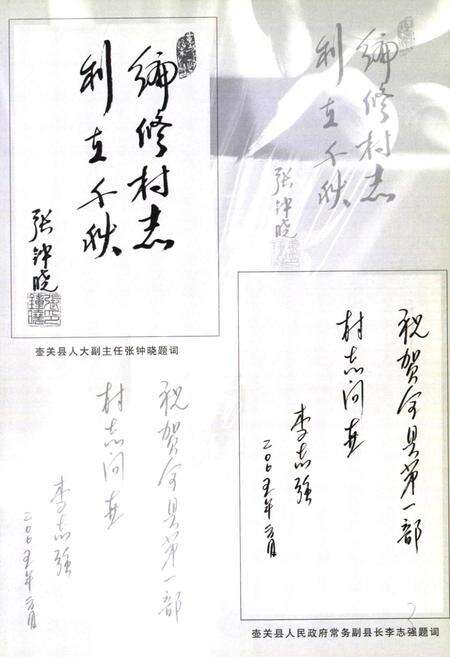 编修村志
利在千秋
张钟晓
壶关县人大副主任张钟晓题词
编修村志
利在千秋
张钟晓
祝贺全县第一部
村志问世
李志强
二00五年六月
壶关县人民政府常务副县长李志强题词
祝贺全县第一部
村志问世
李志强
二00五年六月